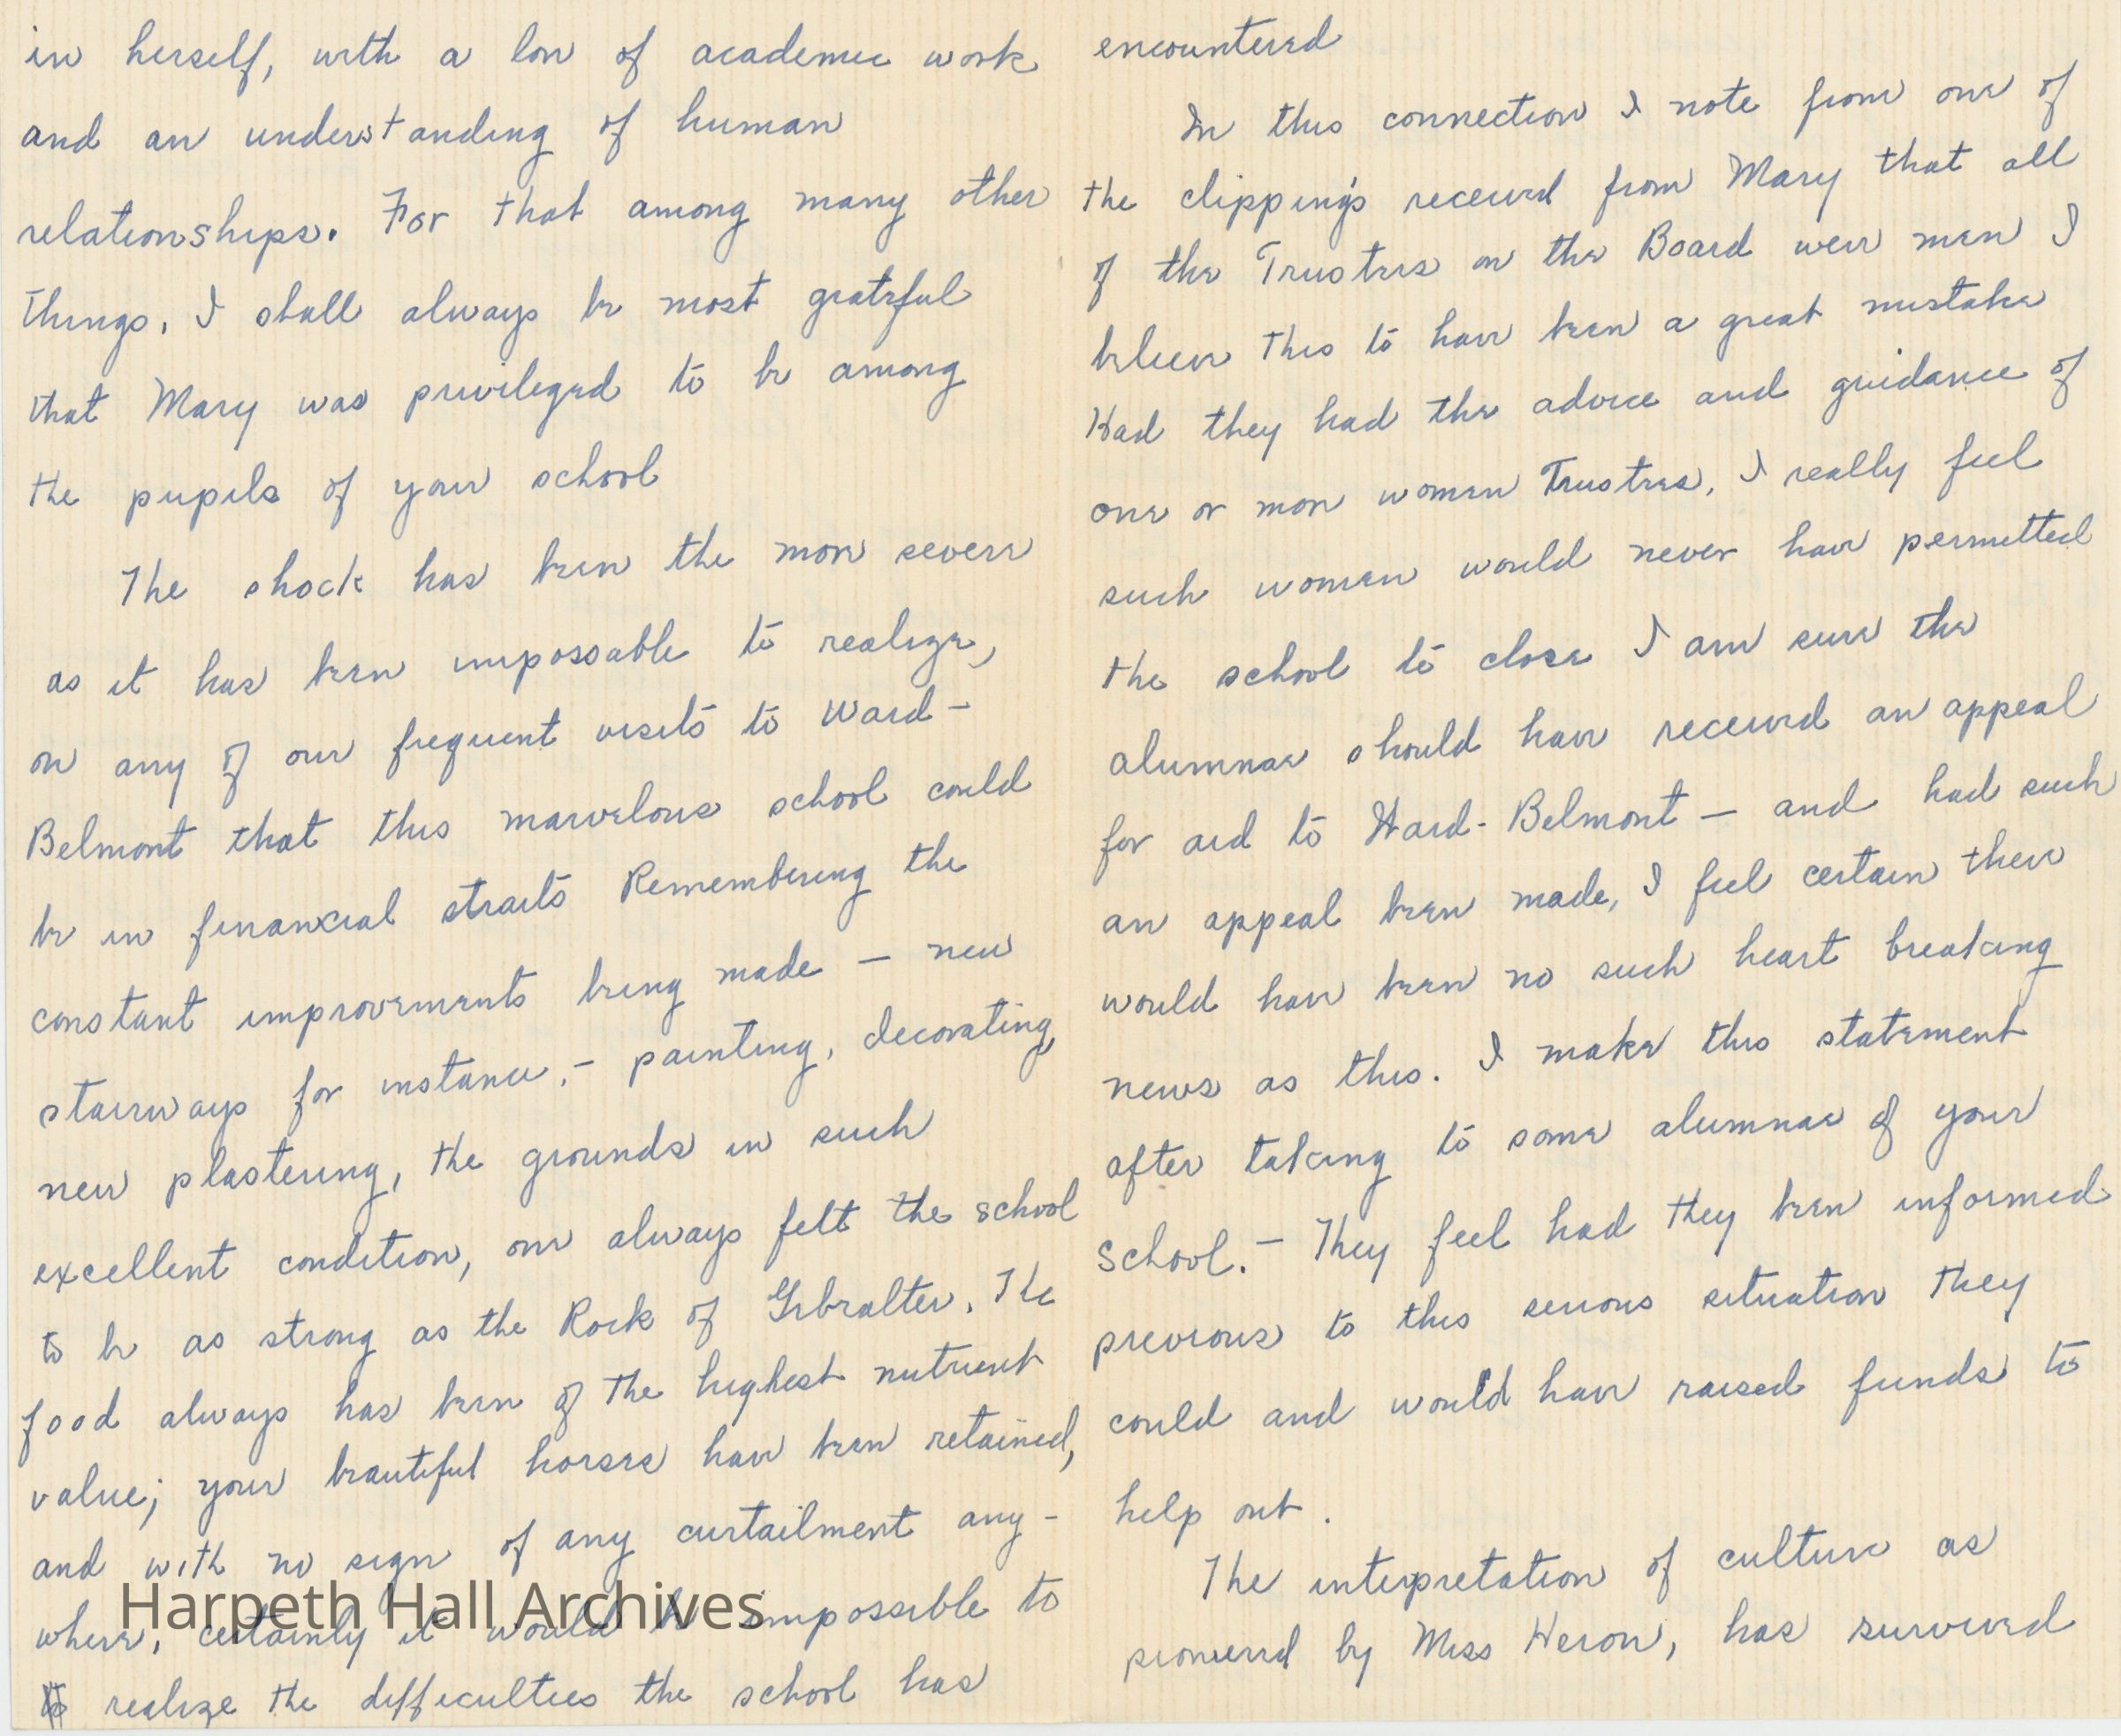 in herself, with a lov of academic work
and an understanding of human
relationships. For that among many other
things, I shall always be most grateful
that Mary was privileged to be among
the pupils of your school
The shock has been the more severe
as it has been impossable to realize,
on any of our frequent visits to Ward-
Belmont that this marvelous school could
be in financial straits Remembering the
constant improvements being made — new
stairways for instance, - painting, decorating,
new plastering, the grounds in such
excellent condition, one always felt the school
to be as strong as the Rock of Gibralter. The
food always has been of the highest nutrient
value; your beautiful horses have been retained,
and with no sign of any curtailment any-
where, certainly it would be impossible to
realize the difficulties the school has
encountered
In this connection I note from one of
the clipping's received from Mary that all
of the Trustees on the Board were men I
believe this to have been a great mistake
Had they had the advice and guidance of
one or more women Trustees, I really feel
such women would never have permitted
the school to close I am sure the
alumnae should have received an appeal
for aid to Ward-Belmont — and had such
an appeal been made, I feel certain there
would have been no such heart breaking
news as this. I make this statement
after talking to some alumnae of your
school. - They feel had they been informed
previous to this serious situation they
could and would have raised funds to
help out.
The interpretation of culture as
pioneered by Miss Heron, has survived
Harpeth Hall Archives